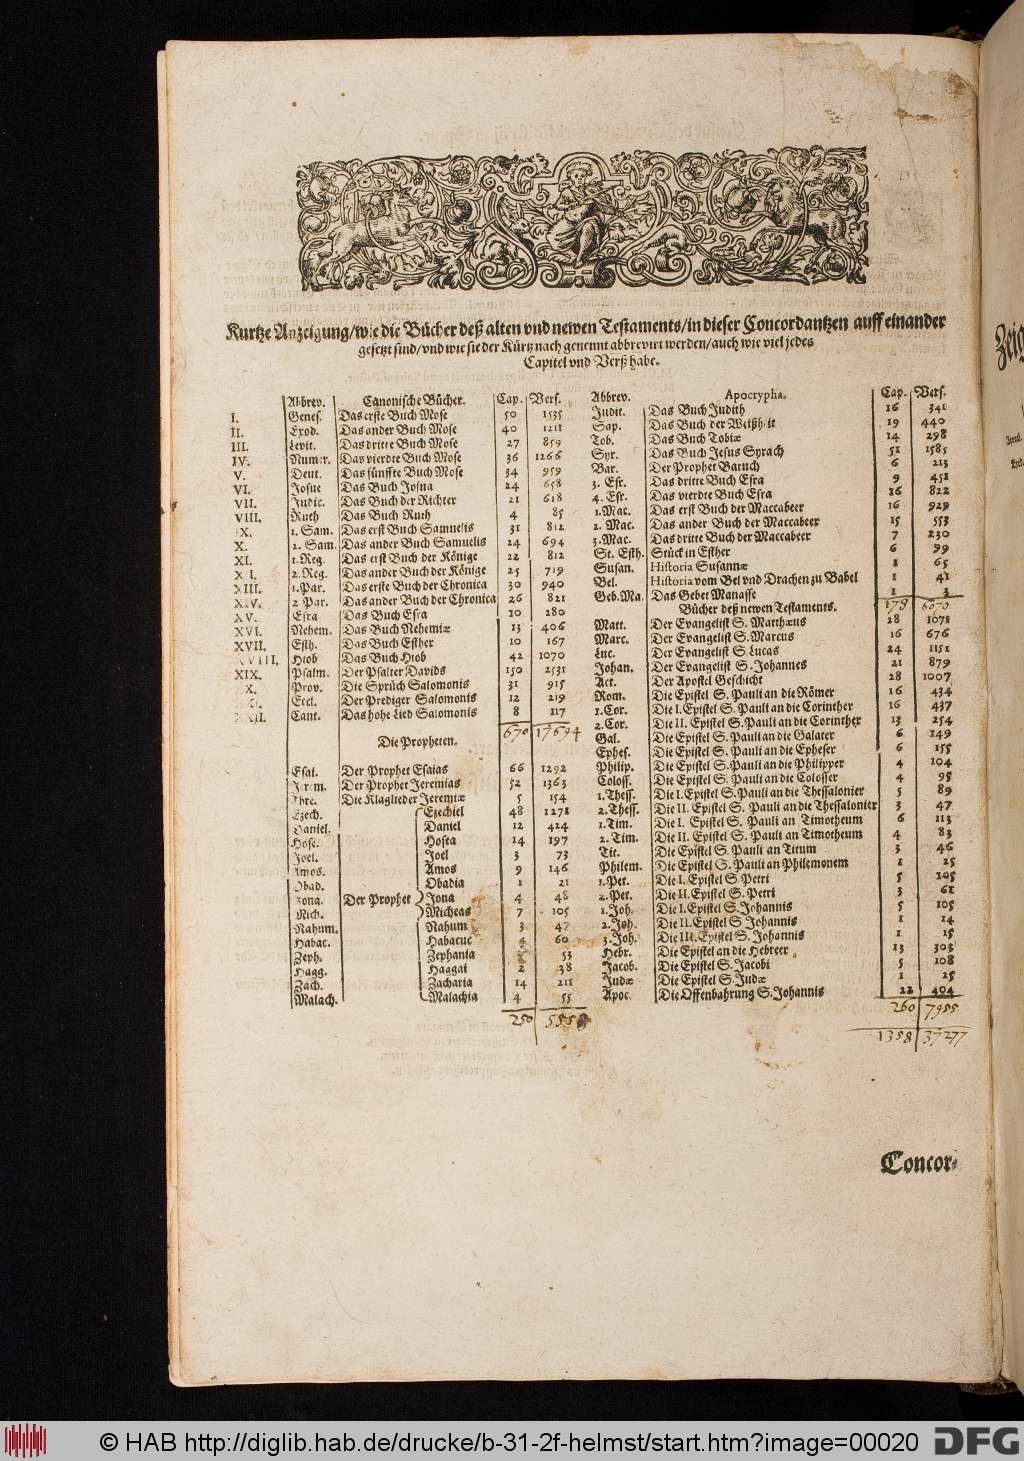 Kurtze Anzeigung/wie die Bücher deß alten vnd newen Testaments/in dieser Concordantzen auff einander
gesetzt sind/vnd wie sie der Kürtz nach genennt abbrevirt werden/auch wie viel jedes
Capitel vnd Verß habe.
Abbrev. Canonische Bücher. Cap. Vers.
I. Genes. Das erste Buch Mose 50 1535
II. Exod. Das ander Buch Mose 40 1211
III. Levit. Das dritte Buch Mose 27 859
IV. Numer. Das vierdte Buch Mose 36 1266
V. Deut. Das fünffte Buch Mose 34 959
VI. Josue Das Buch Josua 24 658
VII. Judic. Das Buch der Richter 21 618
VIII. Ruth Das Buch Ruth 4 85
IX. 1. Sam. Das erst Buch Samuelis 31 812
X. 2. Sam. Das ander Buch Samuelis 24 694
XI. 1. Reg. Das erst Buch der Könige 22 812
XII. 2. Reg. Das ander Buch der Könige 25 719
XIII. 1. Par. Das erste Buch der Chronica 30 940
XIV. 2 Par. Das ander Buch der Chronica 26 821
XV. Esra Das Buch Esra 10 280
XVI. Nehem. Das Buch Nehemiæ 13 406
XVII. Esth. Das Buch Esther 10 167
XVIII. Hiob Das Buch Hiob 42 1070
XIX. Psalm. Der Psalter Davids 150 2531
X. Prov. Die Sprüch Salomonis 31 915
Eccl. Der Prediger Salomonis 12 219
XII. Cant. Das hohe Lied Salomonis 8 117
670 17694
Die Propheten.
Esai. Der Prophet Esaias 66 1292
Jerem. Der Prophet Jeremias 52 1363
Thre. Die Klaglieder Jeremiæ 5 154
Ezech. Ezechiel 48 1271
Daniel. Daniel 12 424
Hose. Hosea 14 197
Joel. Joel 3 73
Amos. Amos 9 146
Obad. Obadia 1 21
Jona. Der Prophet Jona 4 48
Mich. Micheas 7 105
Nahum. Nahum 3 47
Habac. Habacuc 4 60
Zeph. Zephania 53
Hagg. Haggai 2 38
Zach. Zacharia 14 211
Malach. Malachia 4 55
250 5558
Abbrev. Apocrypha. Cap. Vers.
Judit. Das Buch Judith 16 341
Sap. Das Buch der Weißheit 19 440
Tob. Das Buch Tobiæ 14 298
Syr. Das Buch Jesus Syrach 51 1585
Bar. Der Prophet Baruch 6 213
3. Esr. Das dritte Buch Esra 9 451
4. Esr. Das vierdte Buch Esra 16 822
1. Mac. Das erst Buch der Maccabeer 16 929
2. Mac. Das ander Buch der Maccabeer 15 553
3. Mac. Das dritte Buch der Maccabeer 7 230
St. Esth. Stück in Esther 6 99
Susan. Historia Susannæ 1 65
Bel. Historia vom Bel vnd Drachen zu Babel 1 41
Geb. Ma. Das Gebet Manasse 1 3
Bücher deß newen Testaments. 178 6070
Matt. Der Evangelist S. Matthæus 28 1071
Marc. Der Evangelist S. Marcus 16 676
Luc. Der Evangelist S. Lucas 24 1151
Johan. Der Evangelist S. Johannes 21 879
Act. Der Apostel Geschicht 28 1007
Rom. Die Epistel S. Pauli an die Römer 16 434
1. Cor. Die I. Epistel S. Pauli an die Corinther 16 437
2. Cor. Die II. Epistel S. Pauli an die Corinther 13 254
Gal. Die Epistel S. Pauli an die Galater 6 149
Ephes. Die Epistel S. Pauli an die Epheser 6 155
Philip. Die Epistel S. Pauli an die Philipper 4 104
Coloss. Die Epistel S. Pauli an die Colosser 4 95
1. Thess. Die I. Epistel S. Pauli an die Thessalonier 5 89
2. Thess. Die II. Epistel S. Pauli an die Thessalonier 3 47
1. Tim. Die I. Epistel S. Pauli an Timotheum 6 113
2. Tim. Die II. Epistel S. Pauli an Timotheum 4 83
Tit. Die Epistel S. Pauli an Titum 3 46
Philem. Die Epistel S. Pauli an Philemonem 1 25
1. Pet. Die I. Epistel S. Petri 5 105
2. Pet. Die II. Epistel S. Petri 3 61
1. Joh. Die I. Epistel S. Johannis 5 105
2. Joh. Die II. Epistel S. Johannis 1 14
3. Joh. Die III. Epistel S. Johannis 1 15
Hebr. Die Epistel an die Hebreer 13 303
Jacob. Die Epistel S. Jacobi 5 108
Judæ Die Epistel S. Judæ 1 25
Apoc. Die Offenbahrung S. Johannis 22 404
260 7955
1358 37277
Concor-
Zeig
© HAB http://diglib.hab.de/drucke/b-31-2f-helmst/start.htm?image=00020
DFG